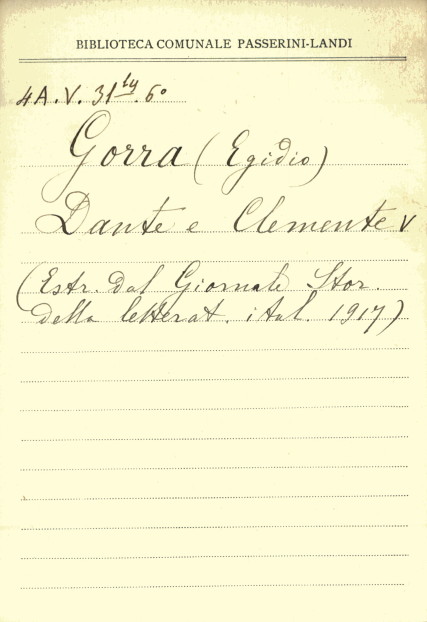 BIBLIOTECA COMUNALE PASSERINI-LANDI
4A.V. 31ly. 6°
Gorra (Egidio)
Dante e Clemente V
(Estr. dal Giornale Stor.
della letterat. ital. 1917)